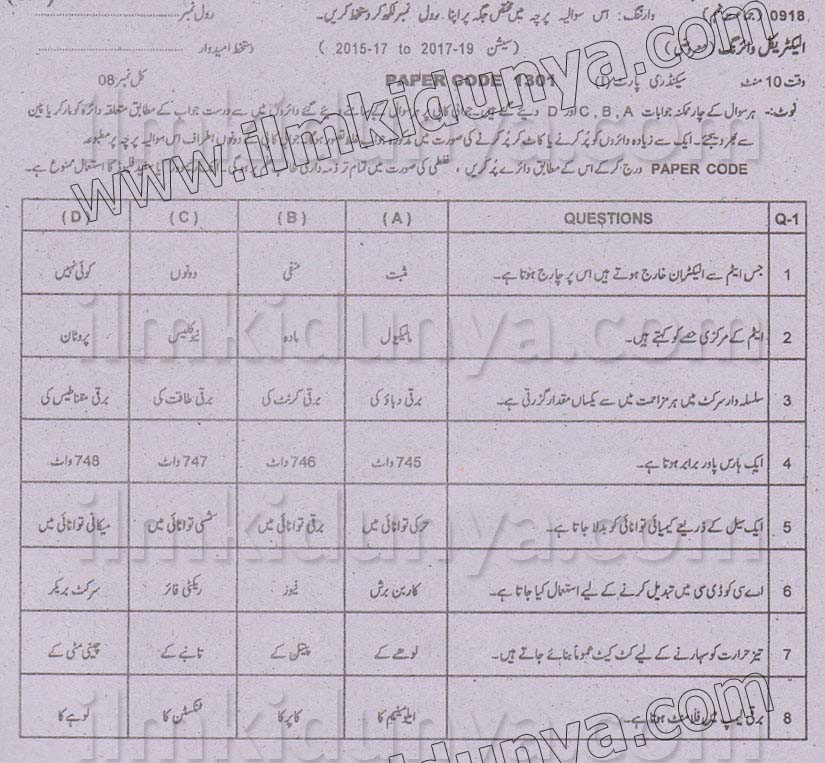 0918 وارننگ: اس سوالیہ پرچہ میں مختص جگہ پر اپنا رول نمبر لکھ کر دستخط کریں۔ رول نمبر
الیکٹریکل وائرنگ (سیشن 2015-17 to 2017-19) دستخط امیدوار
وقت 10 منٹ سیکنڈری پارٹ PAPER CODE 1301 کل نمبر 08
نوٹ:- ہر سوال کے چار ممکنہ جوابات A ، B ، C اور D دیے گئے ہیں۔ جوابی کاپی پر ہر سوال کے سامنے دیے گئے دائروں میں سے درست جواب کے مطابق متعلقہ دائرہ کو مارکر یا پین
سے بھر دیجئے۔ ایک سے زیادہ دائروں کو پُر کرنے یا کاٹ کر پُر کرنے کی صورت میں مذکورہ جواب غلط تصور ہوگا۔ جوابی کاپی کے دونوں اطراف اس سوالیہ پرچہ پر مطبوعہ
PAPER CODE درج کر کے اس کے مطابق دائرے پُر کریں ، غلطی کی صورت میں تمام تر ذمہ داری کا استعمال ممنوع ہے۔
Q-1 QUESTIONS (A) (B) (C) (D)
1 جس ایٹم سے الیکٹران خارج ہوتے ہیں اس پر چارج ہوتا ہے۔ مثبت منفی دونوں کوئی نہیں
2 ایٹم کے مرکزی حصے کو کہتے ہیں۔ مالیکیول مادہ نیوکلیس پروٹان
3 سلسلہ وار سرکٹ میں ہر مزاحمت میں سے یکساں مقدار گزرتی ہے۔ برقی دباؤ کی برقی کرنٹ کی برقی طاقت کی برقی مقناطیس کی
4 ایک ہارس پاور برابر ہوتا ہے۔ 745 واٹ 746 واٹ 747 واٹ 748 واٹ
5 ایک سیل کے ذریعے کیمیائی توانائی کو بدلا جاتا ہے۔ حرکی توانائی میں برقی توانائی میں شمسی توانائی میں میکانی توانائی میں
6 اے سی کو ڈی سی میں تبدیل کرنے کے لیے استعمال کیا جاتا ہے۔ کاربن برش فیوز ریکٹی فائر سرکٹ بریکر
7 تیز حرارت کو سہارنے کے لیے کٹ کیٹ عموماً بنائے جاتے ہیں۔ لوھے کے پیتل کے تانبے کے چینی مٹی کے
8 برقی لیمپ میں فلامنٹ ہوتا ہے۔ ایلومینیم کا کاپر کا ٹنگسٹن کا لوہے کا
www.ilmkidunya.com
ilmkidunya.com
ilmkidunya.com
ilmkidunya.com